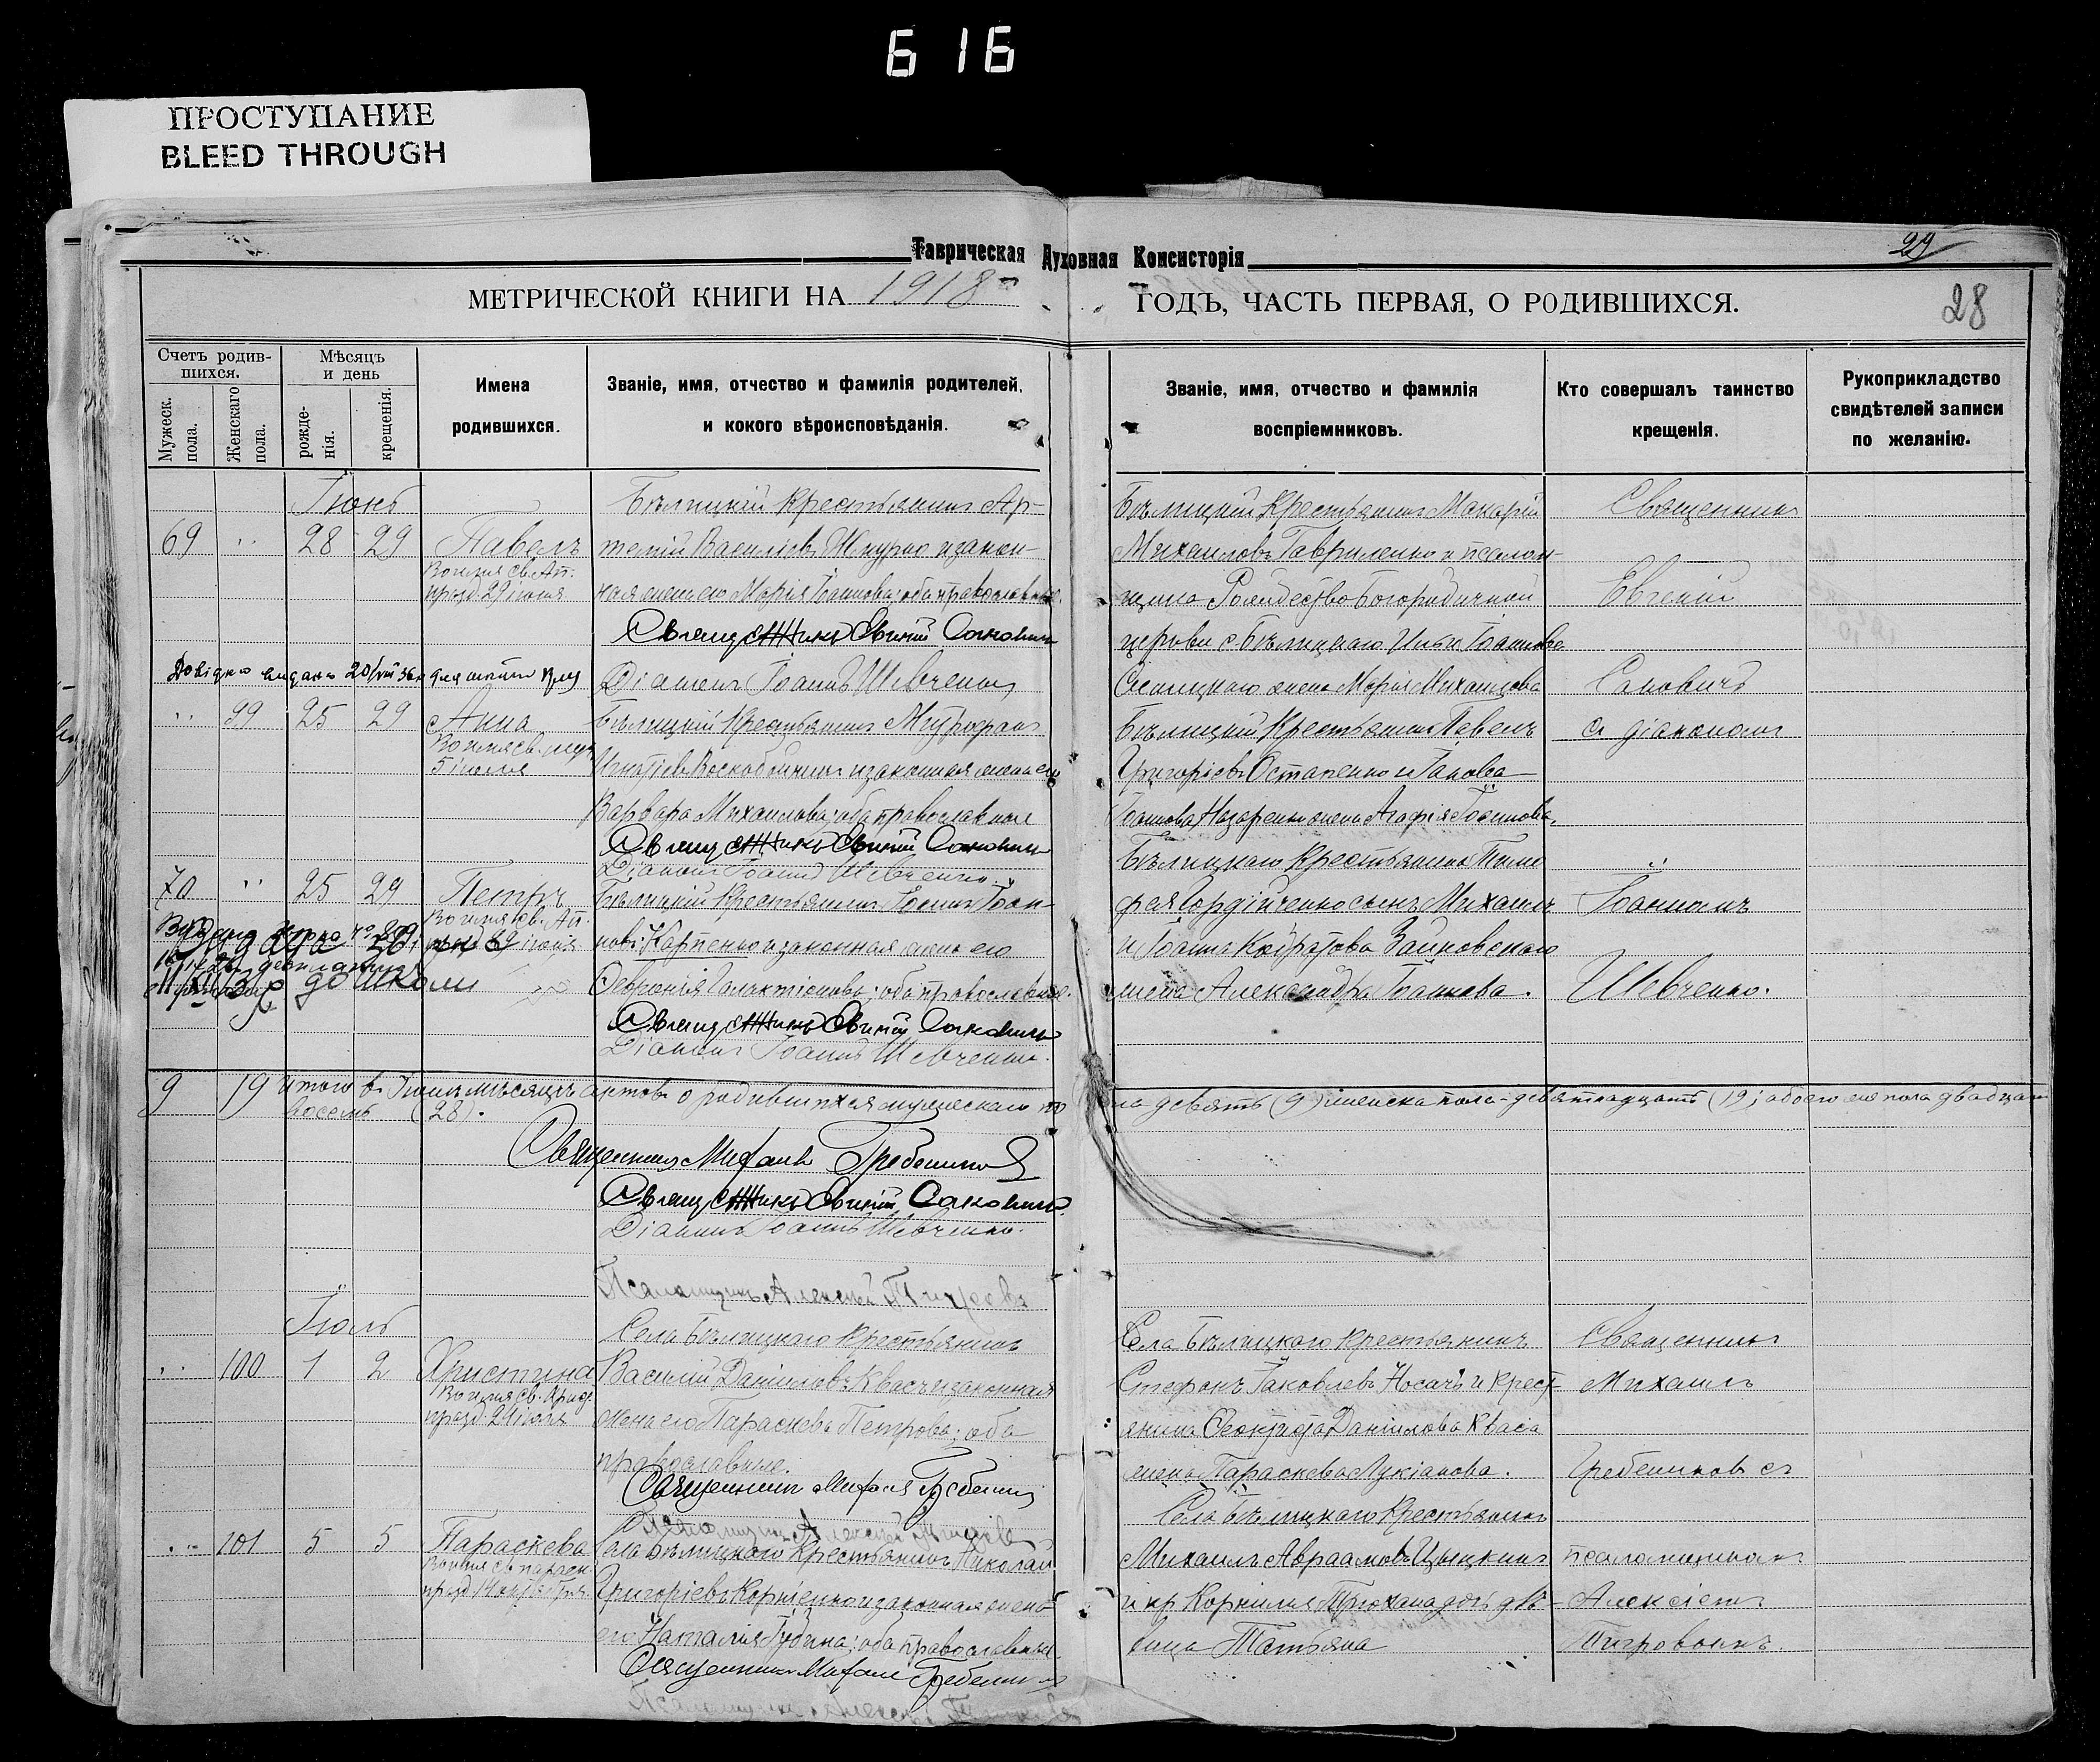 616
ПРОСТУПАНИЕ
BLEED THROUGH
Таврическая Духовная Консисторія
29
МЕТРИЧЕСКОЙ КНИГИ НА 1918 ГОДЪ, ЧАСТЬ ПЕРВАЯ, О РОДИВШИХСЯ.
28
Счетъ родив-
шихся.
Мужеск. пола.
Женскаго пола.
Мѣсяцъ
и день
рожде-
нія.
крещенія.
Имена
родившихся.
Званіе, имя, отчество и фамилія родителей,
и кокого вѣроисповѣданія.
Званіе, имя, отчество и фамилія
воспріемниковъ.
Кто совершалъ таинство
крещенія.
Рукоприкладство
свидѣтелей записи
по желанію.
Іюнь
69 28 29 Павелъ
празд. 29 іюня
Бѣлицкій крестьянинъ Ар-
темій Василіевъ Шкурко и закон-
ная жена его Марія Іоаннова; оба православные.
Священникъ Евгеній Саковичъ
Діаконъ Іоаннъ Шевченко
Бѣлицкій крестьянинъ Макарій
Михаиловъ Гавриленко и псалом-
щика Рождество Богородичной
церкви с. Бѣлицкаго Ильи Іоаннова
жена Марія Михаилова
Священникъ
Евгеній
Саковичъ
съ діакономъ
99 25 29 Анна
5 іюля
Бѣлицкій крестьянинъ
Игнатіевъ Воскобойникъ и законная жена его
Варвара Михаилова; оба православные
Священникъ Евгеній Саковичъ
Діаконъ Іоаннъ Шевченко
Бѣлицкій крестьянинъ Павелъ
Григоріевъ Остапенко и Іакова
Іоаннова Назаренко жена Агафія Іоаннова.
70 25 29 Петръ
29 іюня
Бѣлицкій крестьянинъ Іоаннъ Іоан-
новъ Карпенко и законная жена его
Евфросинія Галактіонова; оба православные.
Священникъ Евгеній Саковичъ
Діаконъ Іоаннъ Шевченко.
Бѣлицкаго крестьянина Тимо
фея Гордійченко сынъ Михаилъ
жена Александра Іоаннова.
Іоанномъ
Шевченко.
до школи
9 19 Итого въ Іюнѣ мѣсяцѣ актовъ о родившихся мужеского пола девять (9) женска пола - девятнадцать (19); обоего же пола двадцать
восемь (28).
Священникъ Михаилъ Гребенниковъ
Священникъ Евгеній Саковичъ
Діаконъ Іоаннъ Шевченко.
Псаломщикъ Алексій Тигровъ
Іюль
100 1 2 Христина
празд. 24 іюля
Села Бѣлицкаго крестьянинъ
Василій Даніиловъ Квасъ и законная
жена его Параскева Петрова; оба
православные.
Священникъ Михаилъ Гребенниковъ
Псаломщикъ Алексій Тигровъ
Села Бѣлицкаго крестьянинъ
Стефанъ Іаковлевъ Носачъ и крест-
янина Даніилова Кваса
жена Параскева Лукіанова.
Священникъ
Михаилъ
Гребенниковъ съ
101 5 5 Параскева
Села Бѣлицкаго крестьянинъ Николай
Григоріевъ Корніенко и законная жена
его Наталія; оба православные
Священникъ Михаилъ Гребенниковъ
Псаломщикъ Алексій Тигровъ
Села Бѣлицкаго крестьянинъ
Михаилъ Авраамовъ Цыцкинъ
и кр. Корнилія Трюхана дочь дѣ-
вица Татьяна
псаломщикомъ
Алексіемъ
Тигровымъ.